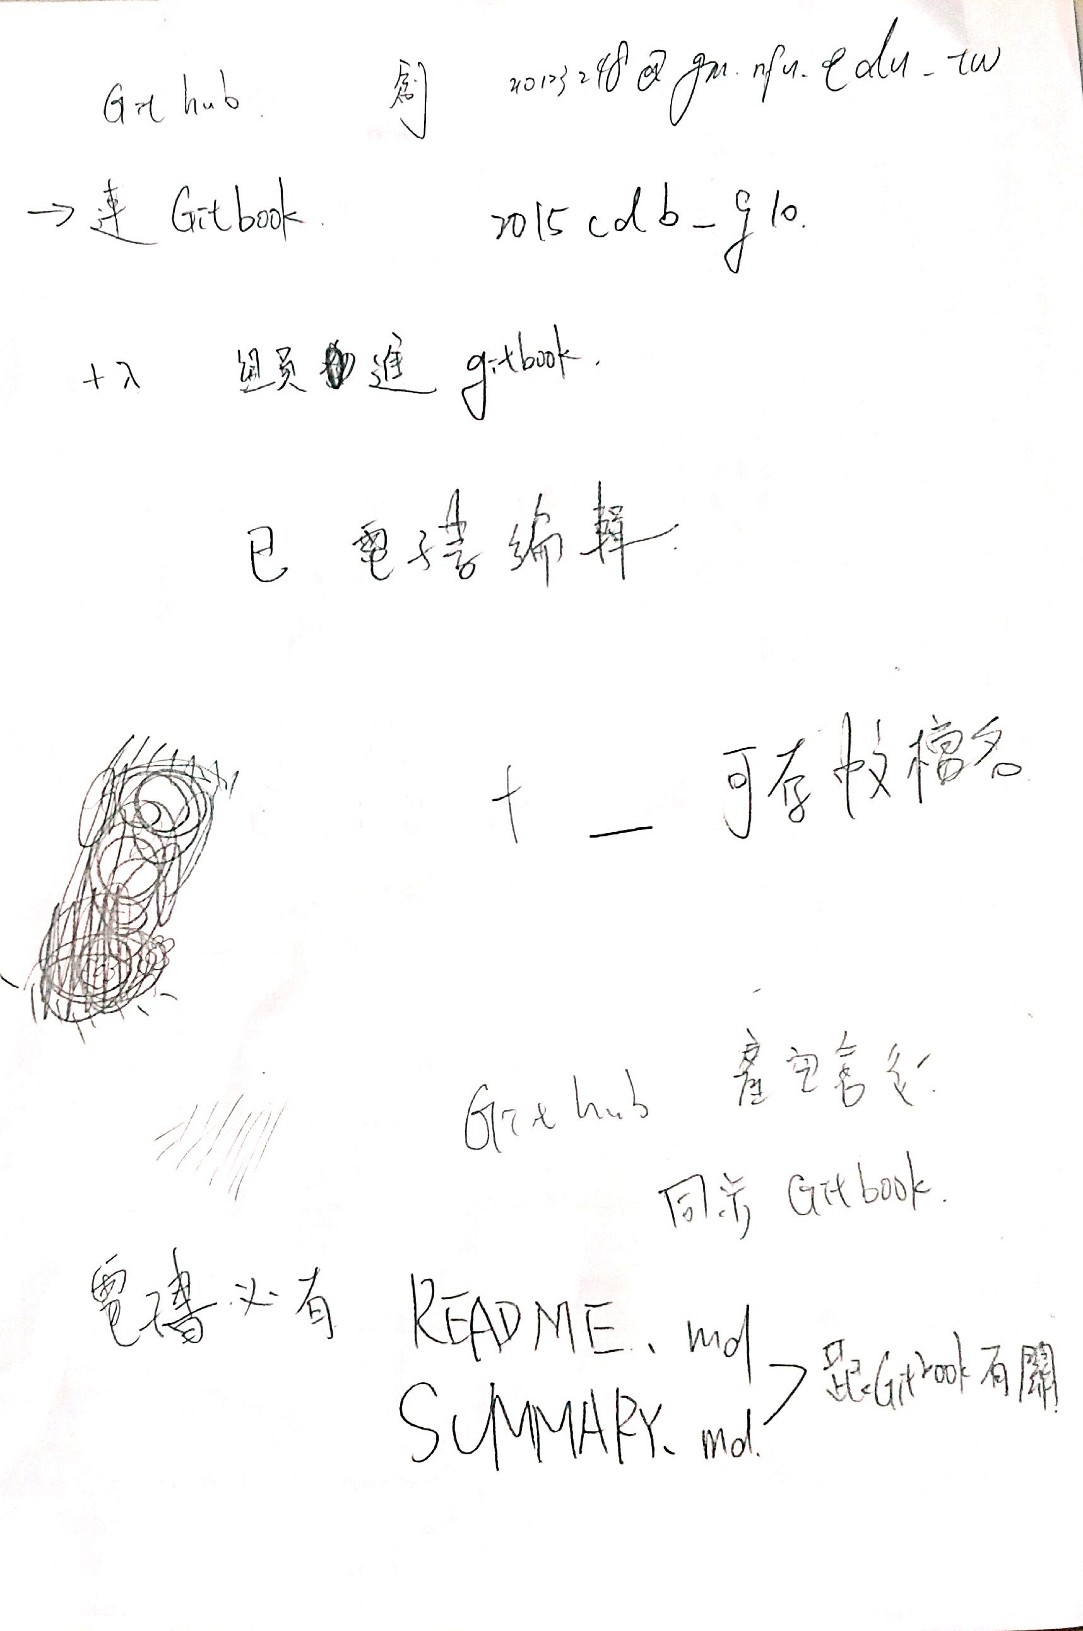 Github. 創 40123248@gm.nfu.edu.tw
→連 Gitbook. 2015cdb_g10.
+入 組員 進 gitbook.
已 電子書編輯.
+ — 可存中文檔名
Github 產
同步 Gitbook.
電子書必有 README.md
SUMMARY.md. 跟Gitbook有關